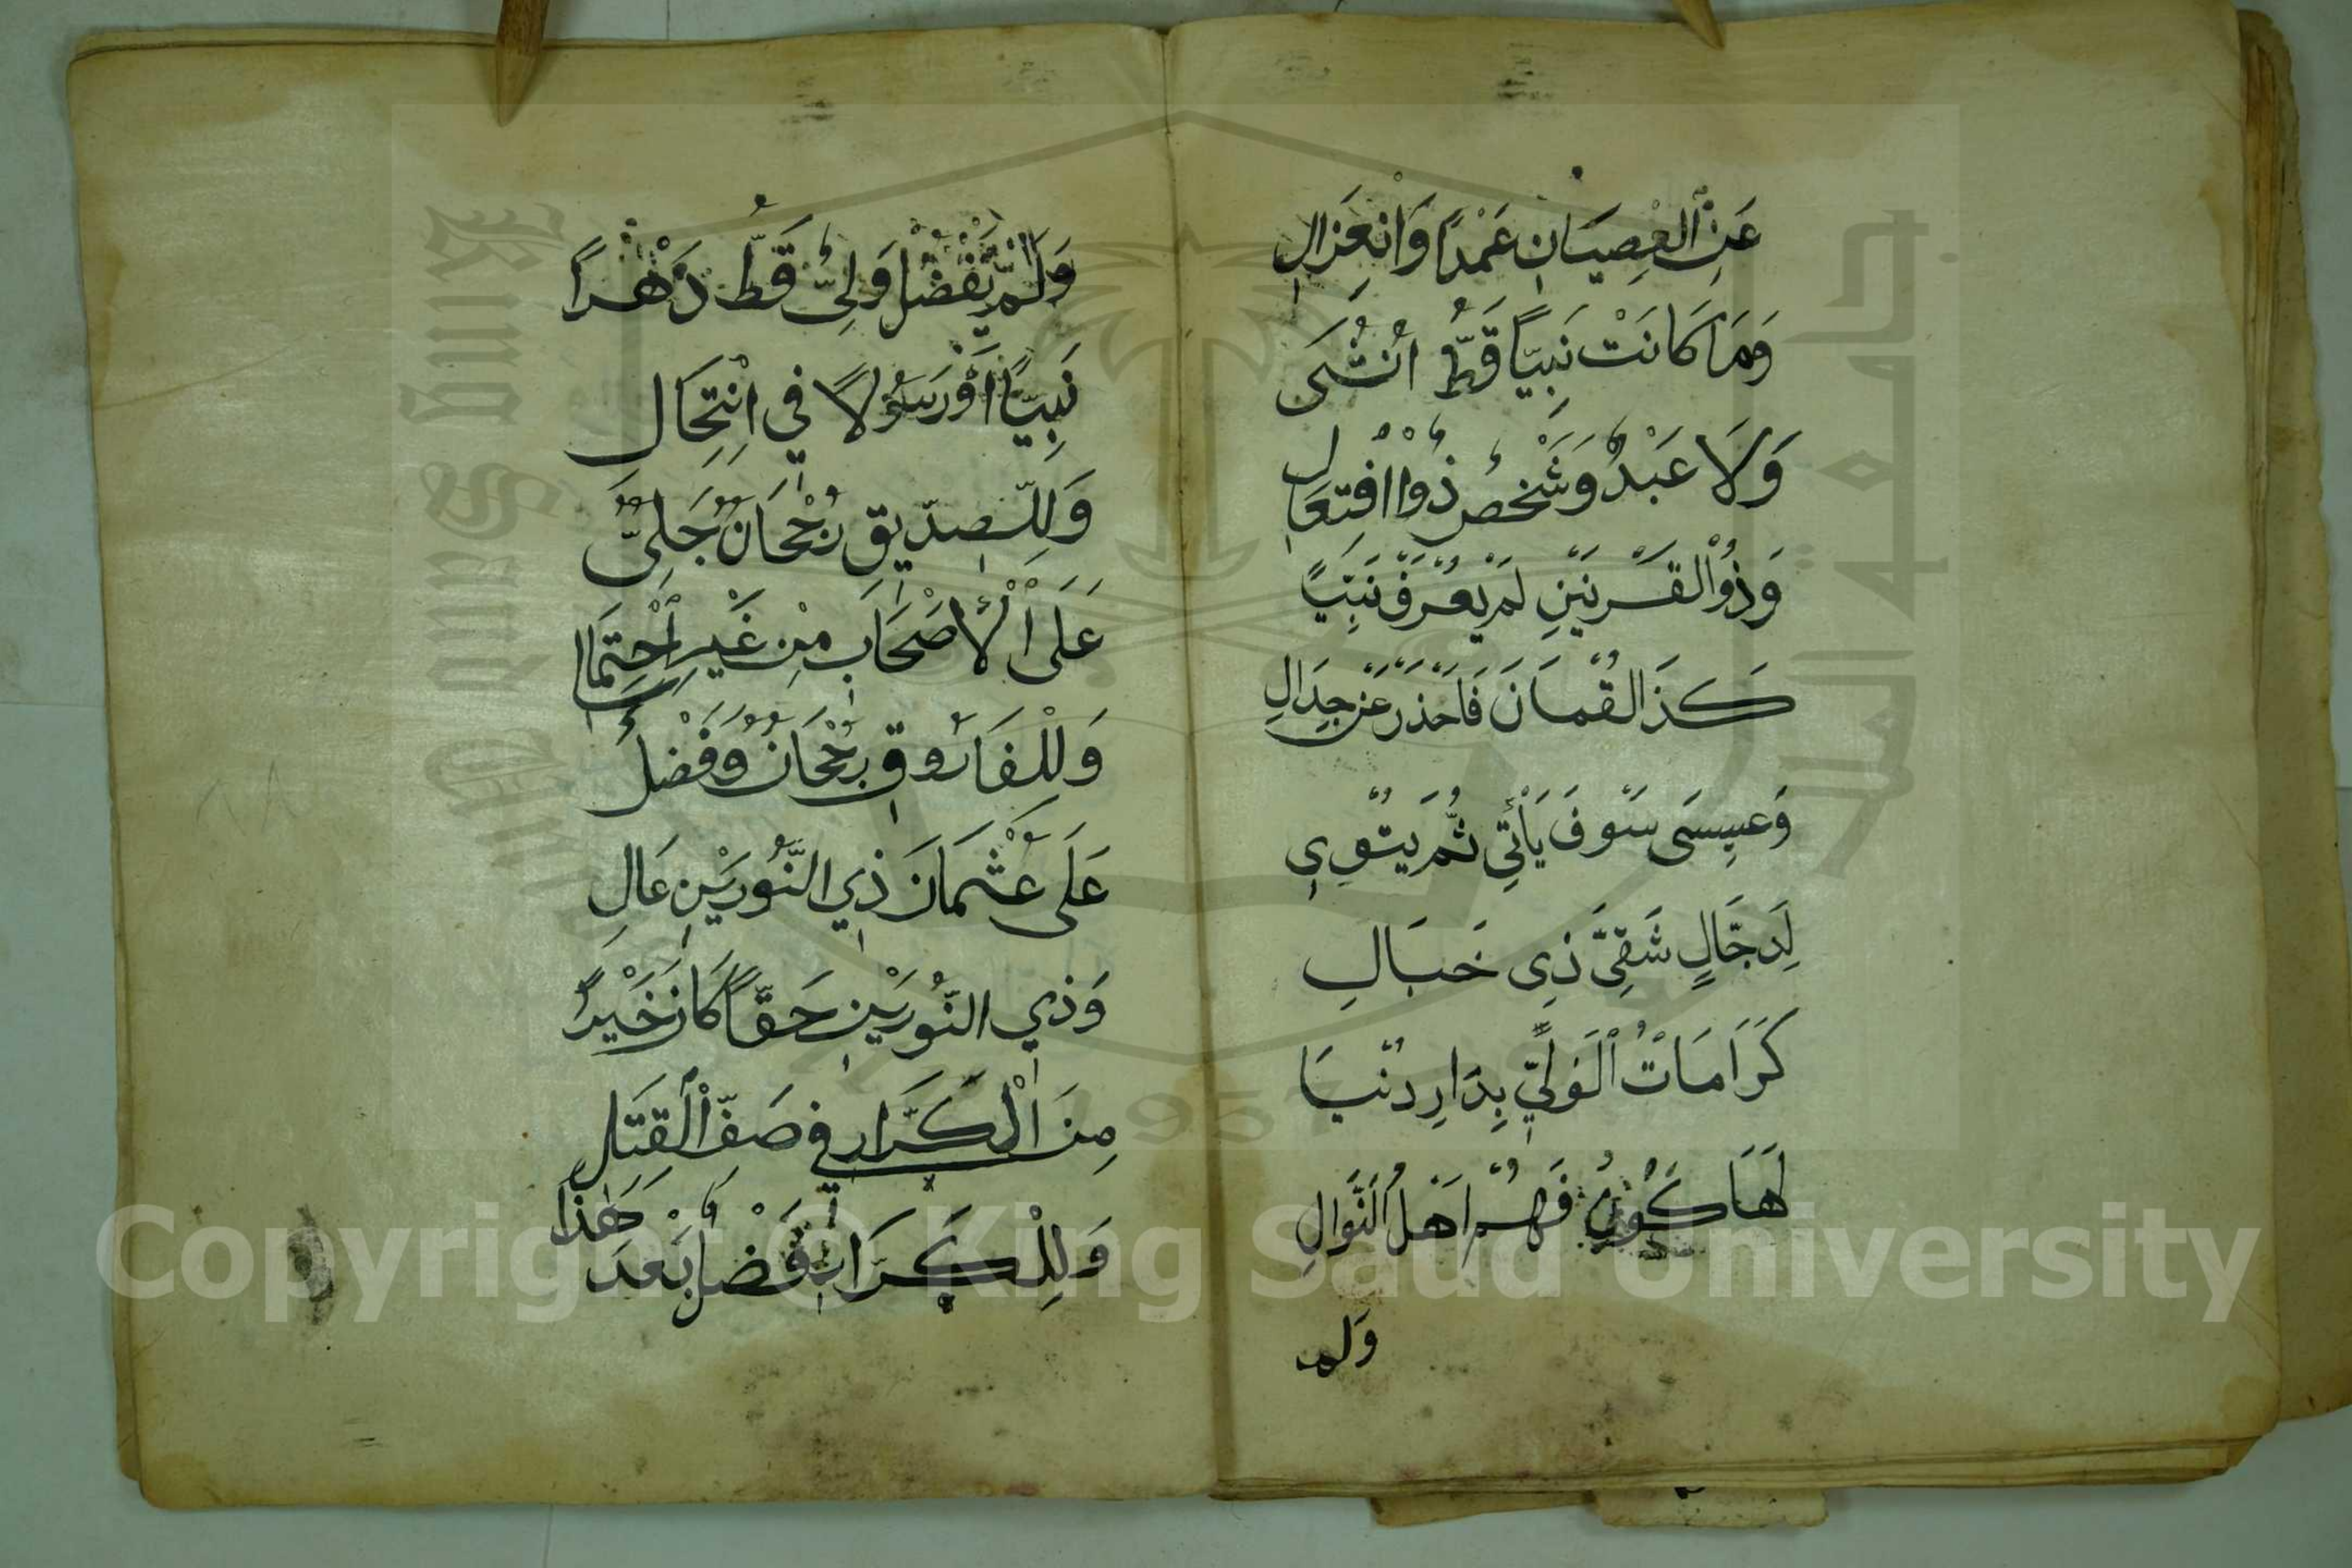 عَنِ الْعِصْيَانِ عَمْدًا وَانْعِزَالِ
وَمَا كَانَتْ نَبِيًّا قَطُّ اُنْثَى
وَلَا عَبْدٌ وَشَخْصٌ ذُوْا افْتِعَالِ
وَذُوْالْقَرْنَيْنِ لَمْ يُعْرَفْ نَبِيًّا
كَذَا لُقْمَانَ فَاحْذَرْ عَنْ جِدَالِ
وَعِيسَى سَوْفَ يَأْتِي ثُمَّ يَتْوِي
لِدَجَّالٍ شَقِيٍّ ذِي خَبَالِ
كَرَامَاتُ الْوَلِيِّ بِدَارِ دُنْيَا
لَهَا كَوْنٌ فَهُمْ اَهْلُ النَّوَالِ
وَلَم
وَلَمْ يَفْضُلْ وَلِيٌّ قَطُّ دَهْرًا
نَبِيًّا اَوْ رَسُوْلًا فِي انْتِحَالِ
وَلِلصِّدِّيقِ رُجْحَانٌ جَلِيٌّ
عَلَى الْأَصْحَابِ مِنْ غَيْرِ احْتِمَالِ
وَلِلْفَارُوقِ رُجْحَانٌ وَفَضْلٌ
عَلَى عُثْمَانَ ذِي النُّورَيْنِ عَالِ
وَذِي النُّورَيْنِ حَقًّا كَانَ خَيْرًا
مِنَ الْكَرَّارِ فِي صَفِّ الْقِتَالِ
وَلِلْكَرَّارِ فَضْلٌ بَعْدَ هٰذَا
Copyright © King Saud University
جامعة الملك سعود
King Saud University
1957